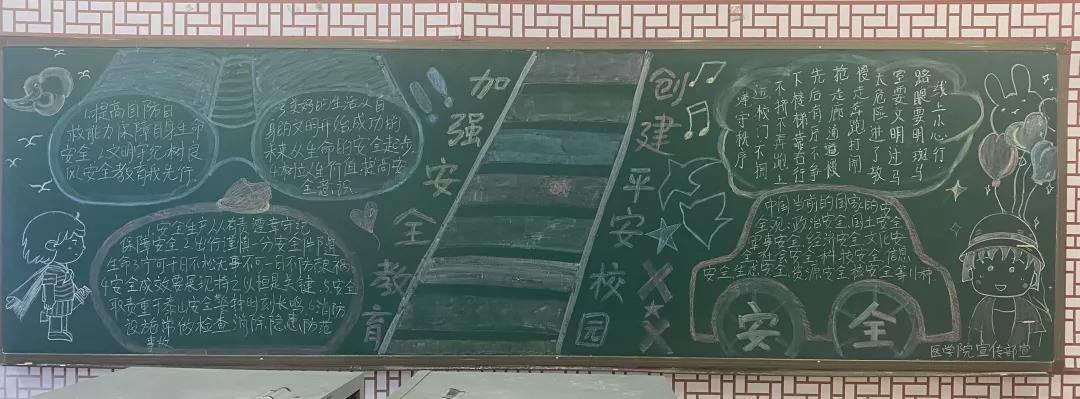 1.提高自防自
救能力保障自身生命
安全2.文明守纪树良
风安全教育我先行
3.美好的生活从自
身的文明开始成功的
未来从生命的安全起步
4.树立人生价值提高安
全意识
1.安全生产人有责遵章守纪
保障安全2.出行谨慎一分安全
生命3.宁可千日不松无事不可一日不防
4安全成效要实现持之以恒是关键5.安全
责重于泰山安全警钟时刻长鸣6.消防
设施常做检查消除隐患防范
事故
加强安全教育
创建平安校园
线上小心行
路眼要明斑马
室要文明进马
太危险进了教
慢走奔跑打闹
抢走廊通道慢
先后有序不争
下楼梯靠右行
不挤不弄跑上
近校门不拥
净守秩序
中国当前的国家的安
全观政治安全国土安全
军事安全经济安全文化安
全社会安全科技安全信息
安全生态安全资源安全核安全等11种
安 全
医学院宣传部宣